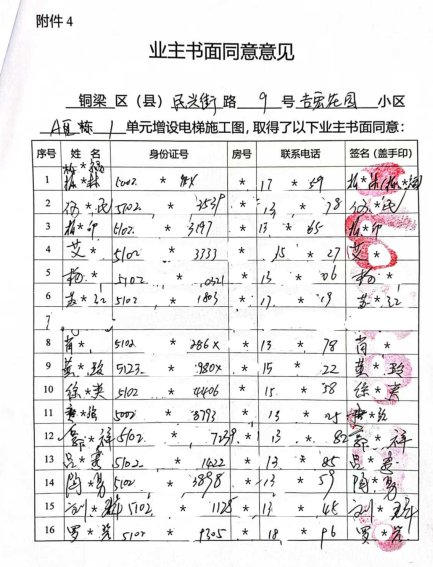 附件 4
业主书面同意意见
铜梁 区（县） 民兴街 路 9 号 吉宏花园 小区
A区 栋 1 单元增设电梯施工图，取得了以下业主书面同意：
序号 姓 名 身份证号 房号 联系电话 签名（盖手印）
1 5002 * * 17 * 59
2 何 * 民 5102 * 3539 * 13 * 78 何 * 民
3 * 印 5102. * 3197 * 13 * 65 * 印
4 艾 * 5102 * 3333 15 * 27 艾 *
5 杨 * 5102 * 0321 * 13 * 06 杨 *
6 苏 * 江 5102 * 1803 * 17 * 19 苏 * 江
7
8 肖 * 5102 * 286X * 13 * 78 肖 *
9 黄 * 玲 5123 * 980X * 15 * 22 黄 * 玲
10 徐 * 美 5102 * 4406 * 15 * 58 徐 * 美
11 5002 * 8793 * 13 * 25
12 郭 * 祥 5102 * 7239 * 13 * 82 郭 * 祥
13 吕 * 5102 * 1422 * 13 * 85 吕 *
14 陶 * 勇 5102 * 3898 * 13 * 59 陶 * 勇
15 刘 * 群 5102 * 1128 * 13 * 45 刘 * 群
16 罗 * 芳 5102 * 9305 * 18 * 96 罗 * 芳